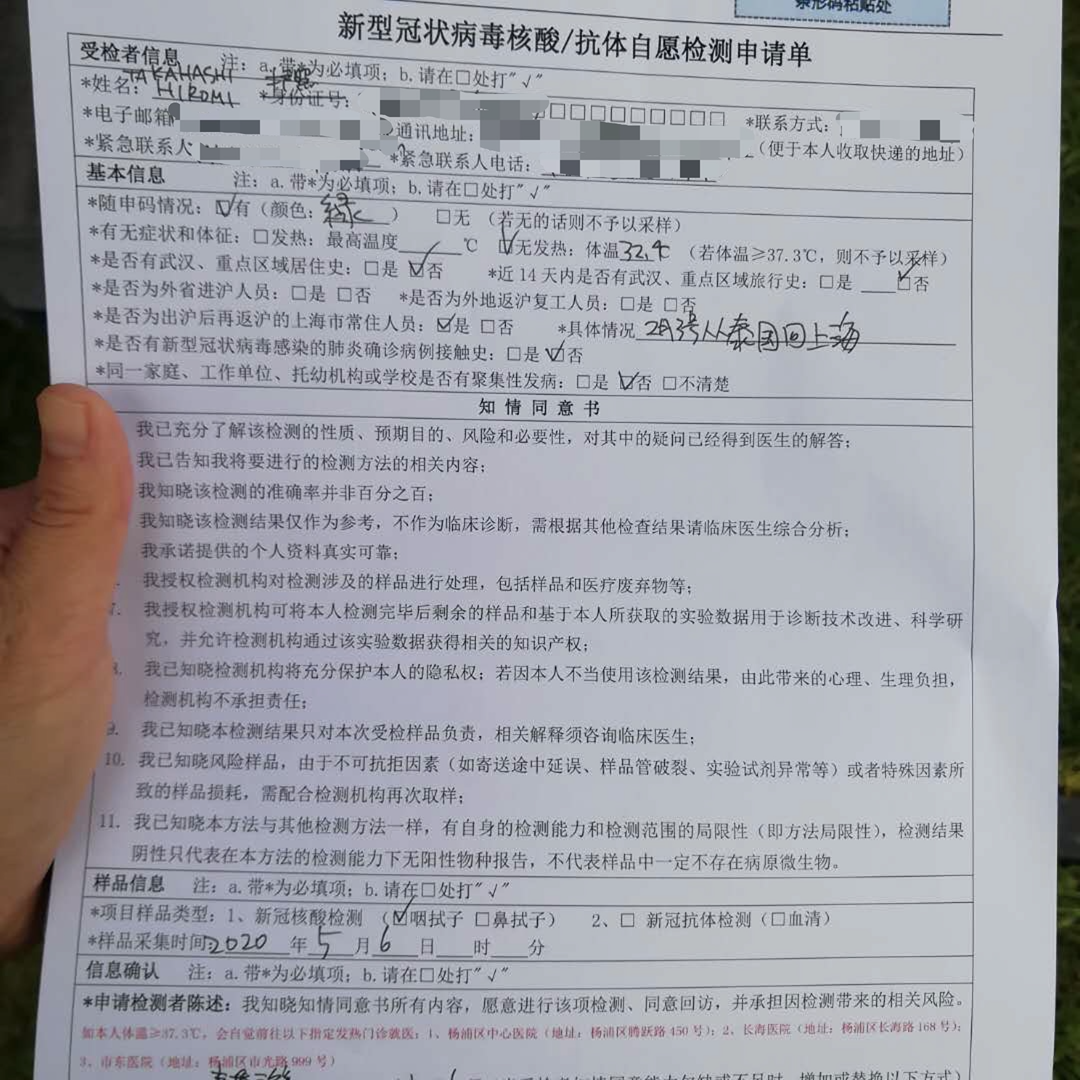 条形码粘贴处
新型冠状病毒核酸/抗体自愿检测申请单
受检者信息 注：a.带*为必填项；b.请在□处打"√"
*姓名：TAKAHASHI HIROMI 护照 *身份证号：□□□□□□□□□ *联系方式：
*电子邮箱 通讯地址： （便于本人收取快递的地址）
*紧急联系人 *紧急联系人电话：
基本信息 注：a.带*为必填项；b.请在□处打"√"
*随申码情况：☑有（颜色：绿） □无（若无的话则不予以采样）
*有无症状和体征：□发热：最高温度 ℃ ☑无发热：体温32.4（若体温≥37.3℃，则不予以采样）
*是否有武汉、重点区域居住史：□是 ☑否 *近14天内是否有武汉、重点区域旅行史：□是 ☑否
*是否为外省进沪人员：□是 □否 *是否为外地返沪复工人员：□是 □否
*是否为出沪后再返沪的上海市常住人员：☑是 □否 *具体情况 2月3号从泰国回上海
*是否有新型冠状病毒感染的肺炎确诊病例接触史：□是 ☑否
*同一家庭、工作单位、托幼机构或学校是否有聚集性发病：□是 ☑否 □不清楚
知情同意书
我已充分了解该检测的性质、预期目的、风险和必要性，对其中的疑问已经得到医生的解答；
我已告知我将要进行的检测方法的相关内容；
我知晓该检测的准确率并非百分之百；
我知晓该检测结果仅作为参考，不作为临床诊断，需根据其他检查结果请临床医生综合分析；
我承诺提供的个人资料真实可靠；
我授权检测机构对检测涉及的样品进行处理，包括样品和医疗废弃物等；
7. 我授权检测机构可将本人检测完毕后剩余的样品和基于本人所获取的实验数据用于诊断技术改进、科学研
究，并允许检测机构通过该实验数据获得相关的知识产权；
8. 我已知晓检测机构将充分保护本人的隐私权；若因本人不当使用该检测结果，由此带来的心理、生理负担，
检测机构不承担责任；
9. 我已知晓本检测结果只对本次受检样品负责，相关解释须咨询临床医生；
10. 我已知晓风险样品，由于不可抗拒因素（如寄送途中延误、样品管破裂、实验试剂异常等）或者特殊因素所
致的样品损耗，需配合检测机构再次取样；
11. 我已知晓本方法与其他检测方法一样，有自身的检测能力和检测范围的局限性（即方法局限性），检测结果
阴性只代表在本方法的检测能力下无阳性物种报告，不代表样品中一定不存在病原微生物。
样品信息 注：a.带*为必填项；b.请在□处打"√"
*项目样品类型：1、新冠核酸检测（☑咽拭子 □鼻拭子） 2、□ 新冠抗体检测（□血清）
*样品采集时间：2020年5月6日 时 分
信息确认 注：a.带*为必填项；b.请在□处打"√"
*申请检测者陈述：我知晓知情同意书所有内容，愿意进行该项检测、同意回访，并承担因检测带来的相关风险。
如本人体温≥37.3℃，会自觉前往以下指定发热门诊就医：1、杨浦区中心医院（地址：杨浦区腾跃路450号）；2、长海医院（地址：杨浦区长海路168号）；
3、市东医院（地址：杨浦区市光路999号）